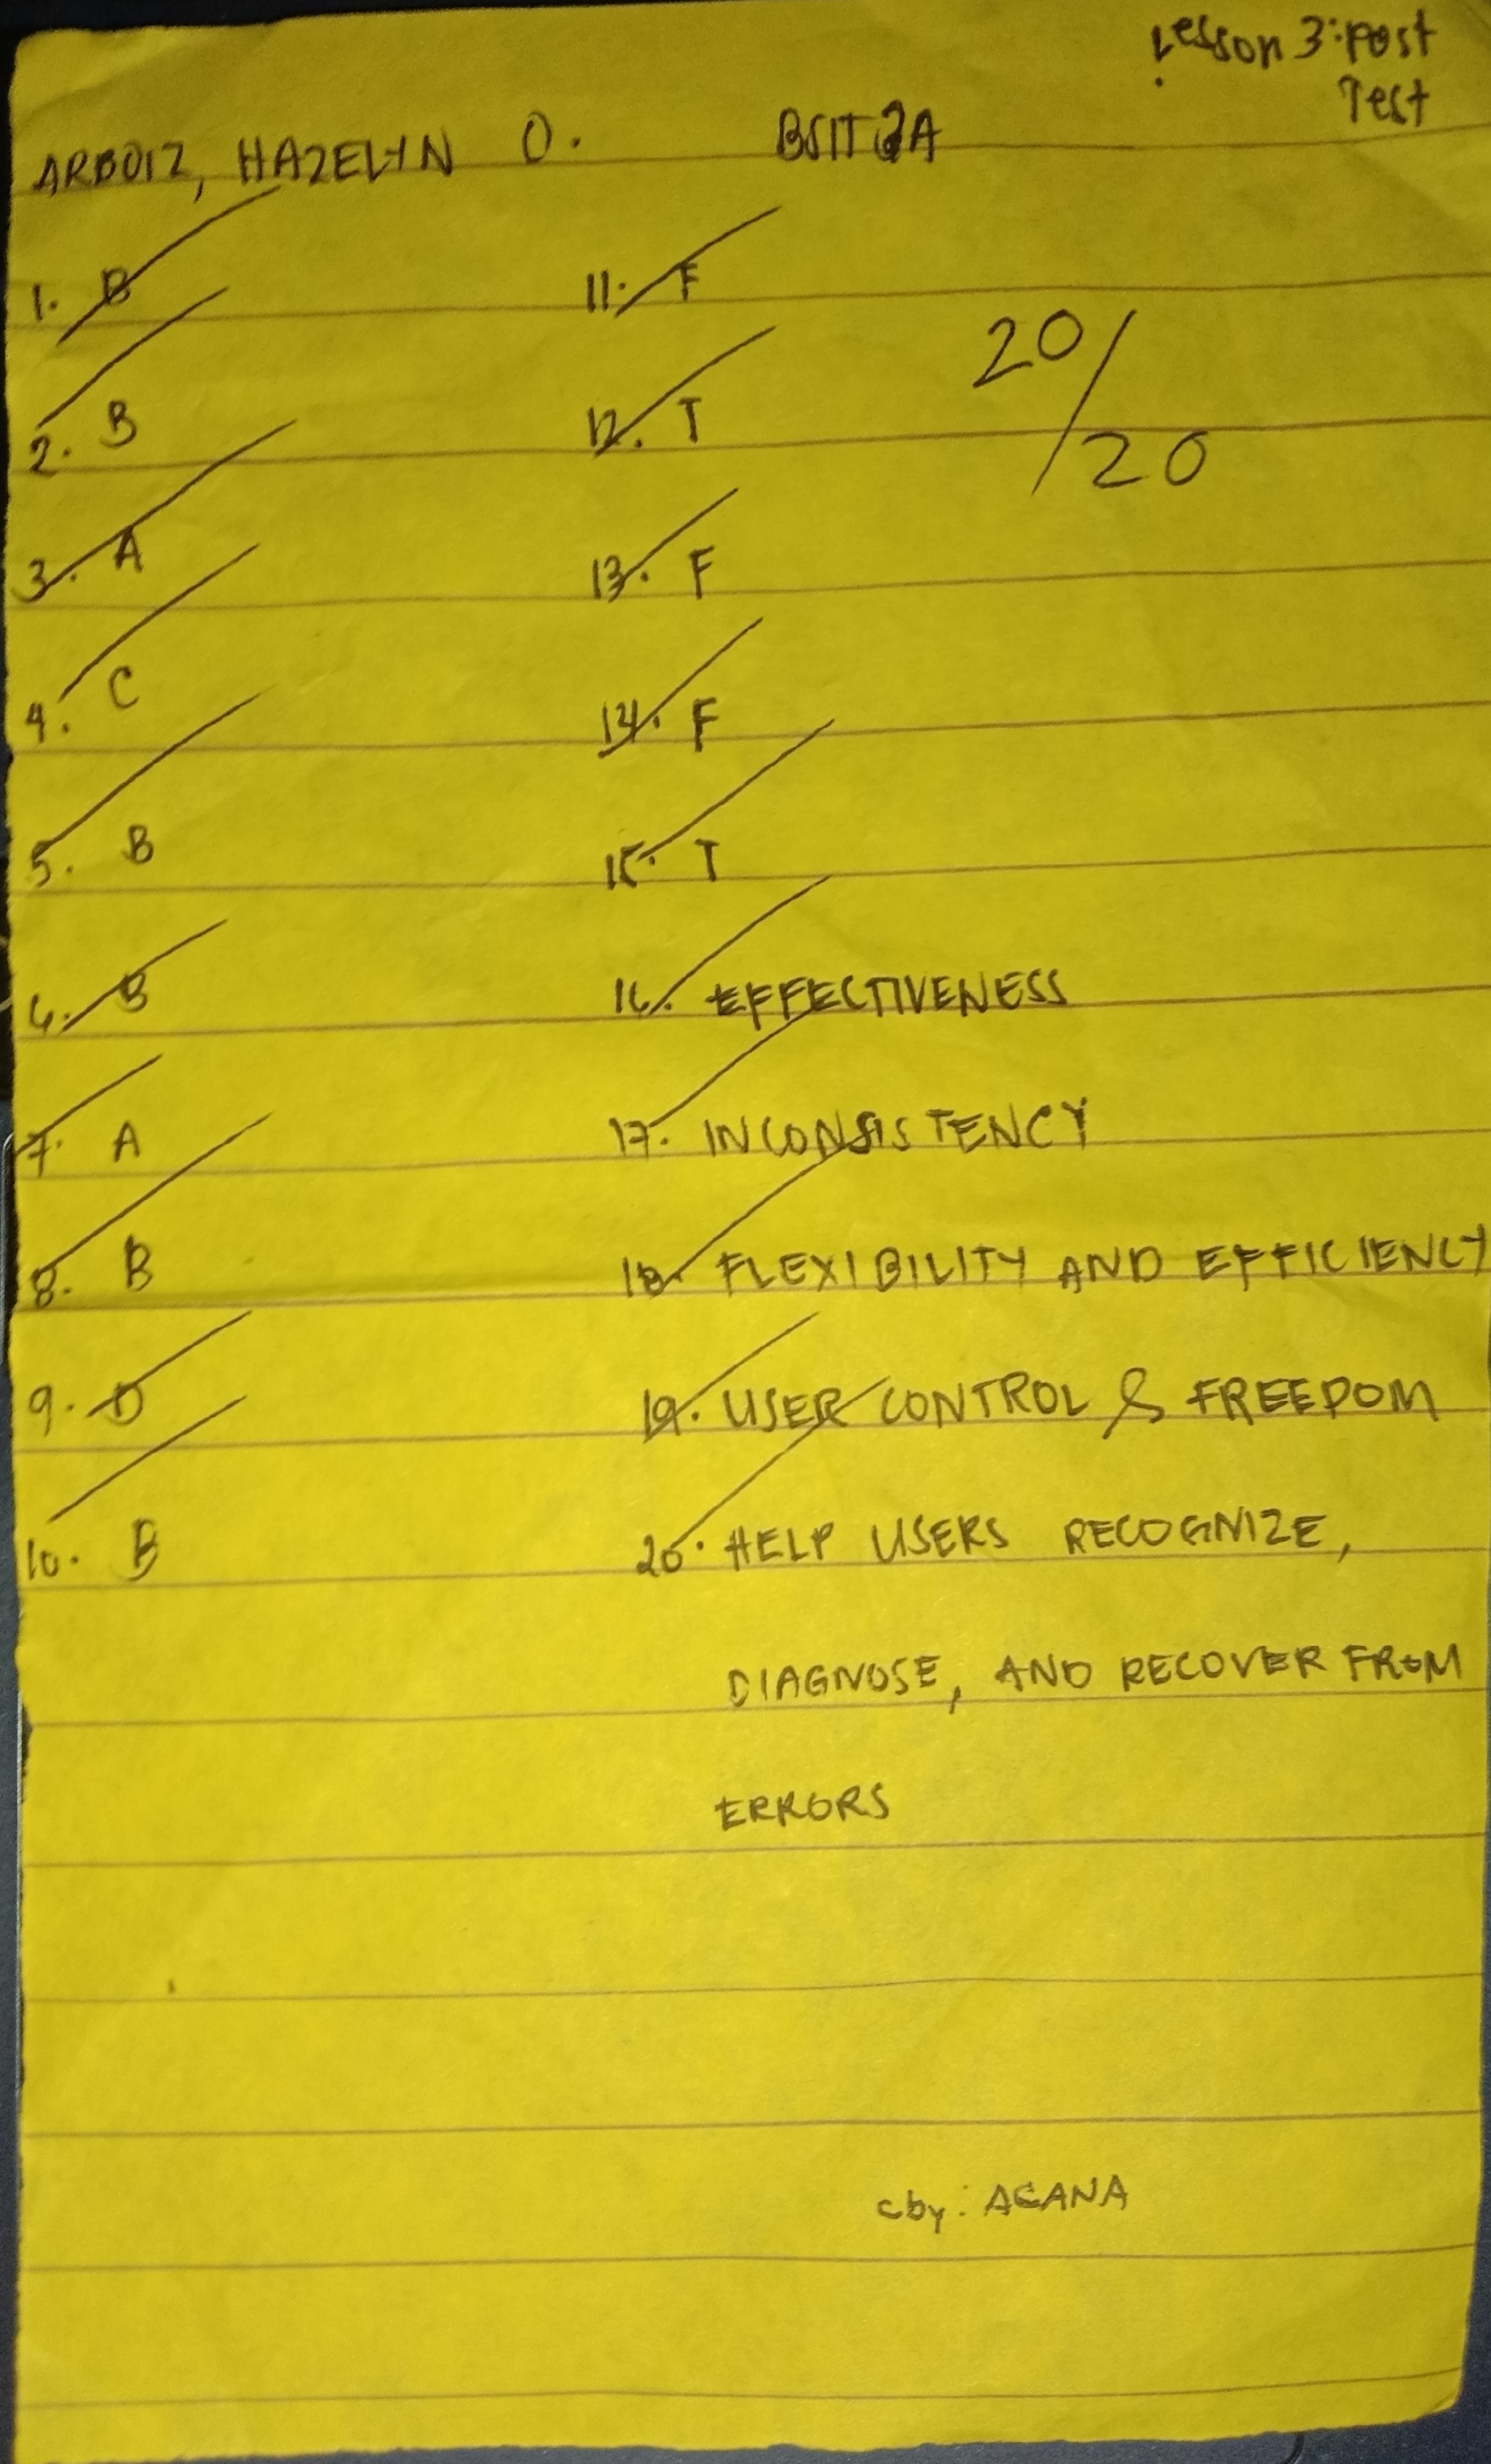 Lesson 3: Post
Test
ARBOIZ, HAZELYN O. BSIT 3A
1. B
2. B
3. A
4. C
5. B
6. B
7. A
8. B
9. D
10. B
11. F
12. T
13. F
14. F
15. T
16. EFFECTIVENESS
17. INCONSISTENCY
18. FLEXIBILITY AND EFFICIENCY
19. USER CONTROL & FREEDOM
20. HELP USERS RECOGNIZE,
DIAGNOSE, AND RECOVER FROM
ERRORS
20/20
cby: ACANA